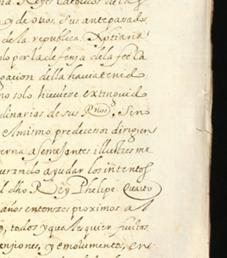 na Reyes Catolicos de las
y de otros, sus antepasados
de la republica Xptiana
solo por la defensa de la fee ca
pacion de lla hauia tenid
no solo huuiese extinguid
dinarias de sus Rnos, sino
el mismo predecesor dirigien
erna a semejantes illustres me
curando ayudar los intentos
el dho Rey Phelipe Quarto
años entonzes proximos a
y todos y qualesquier frutos
enziones, y emolumentos, en